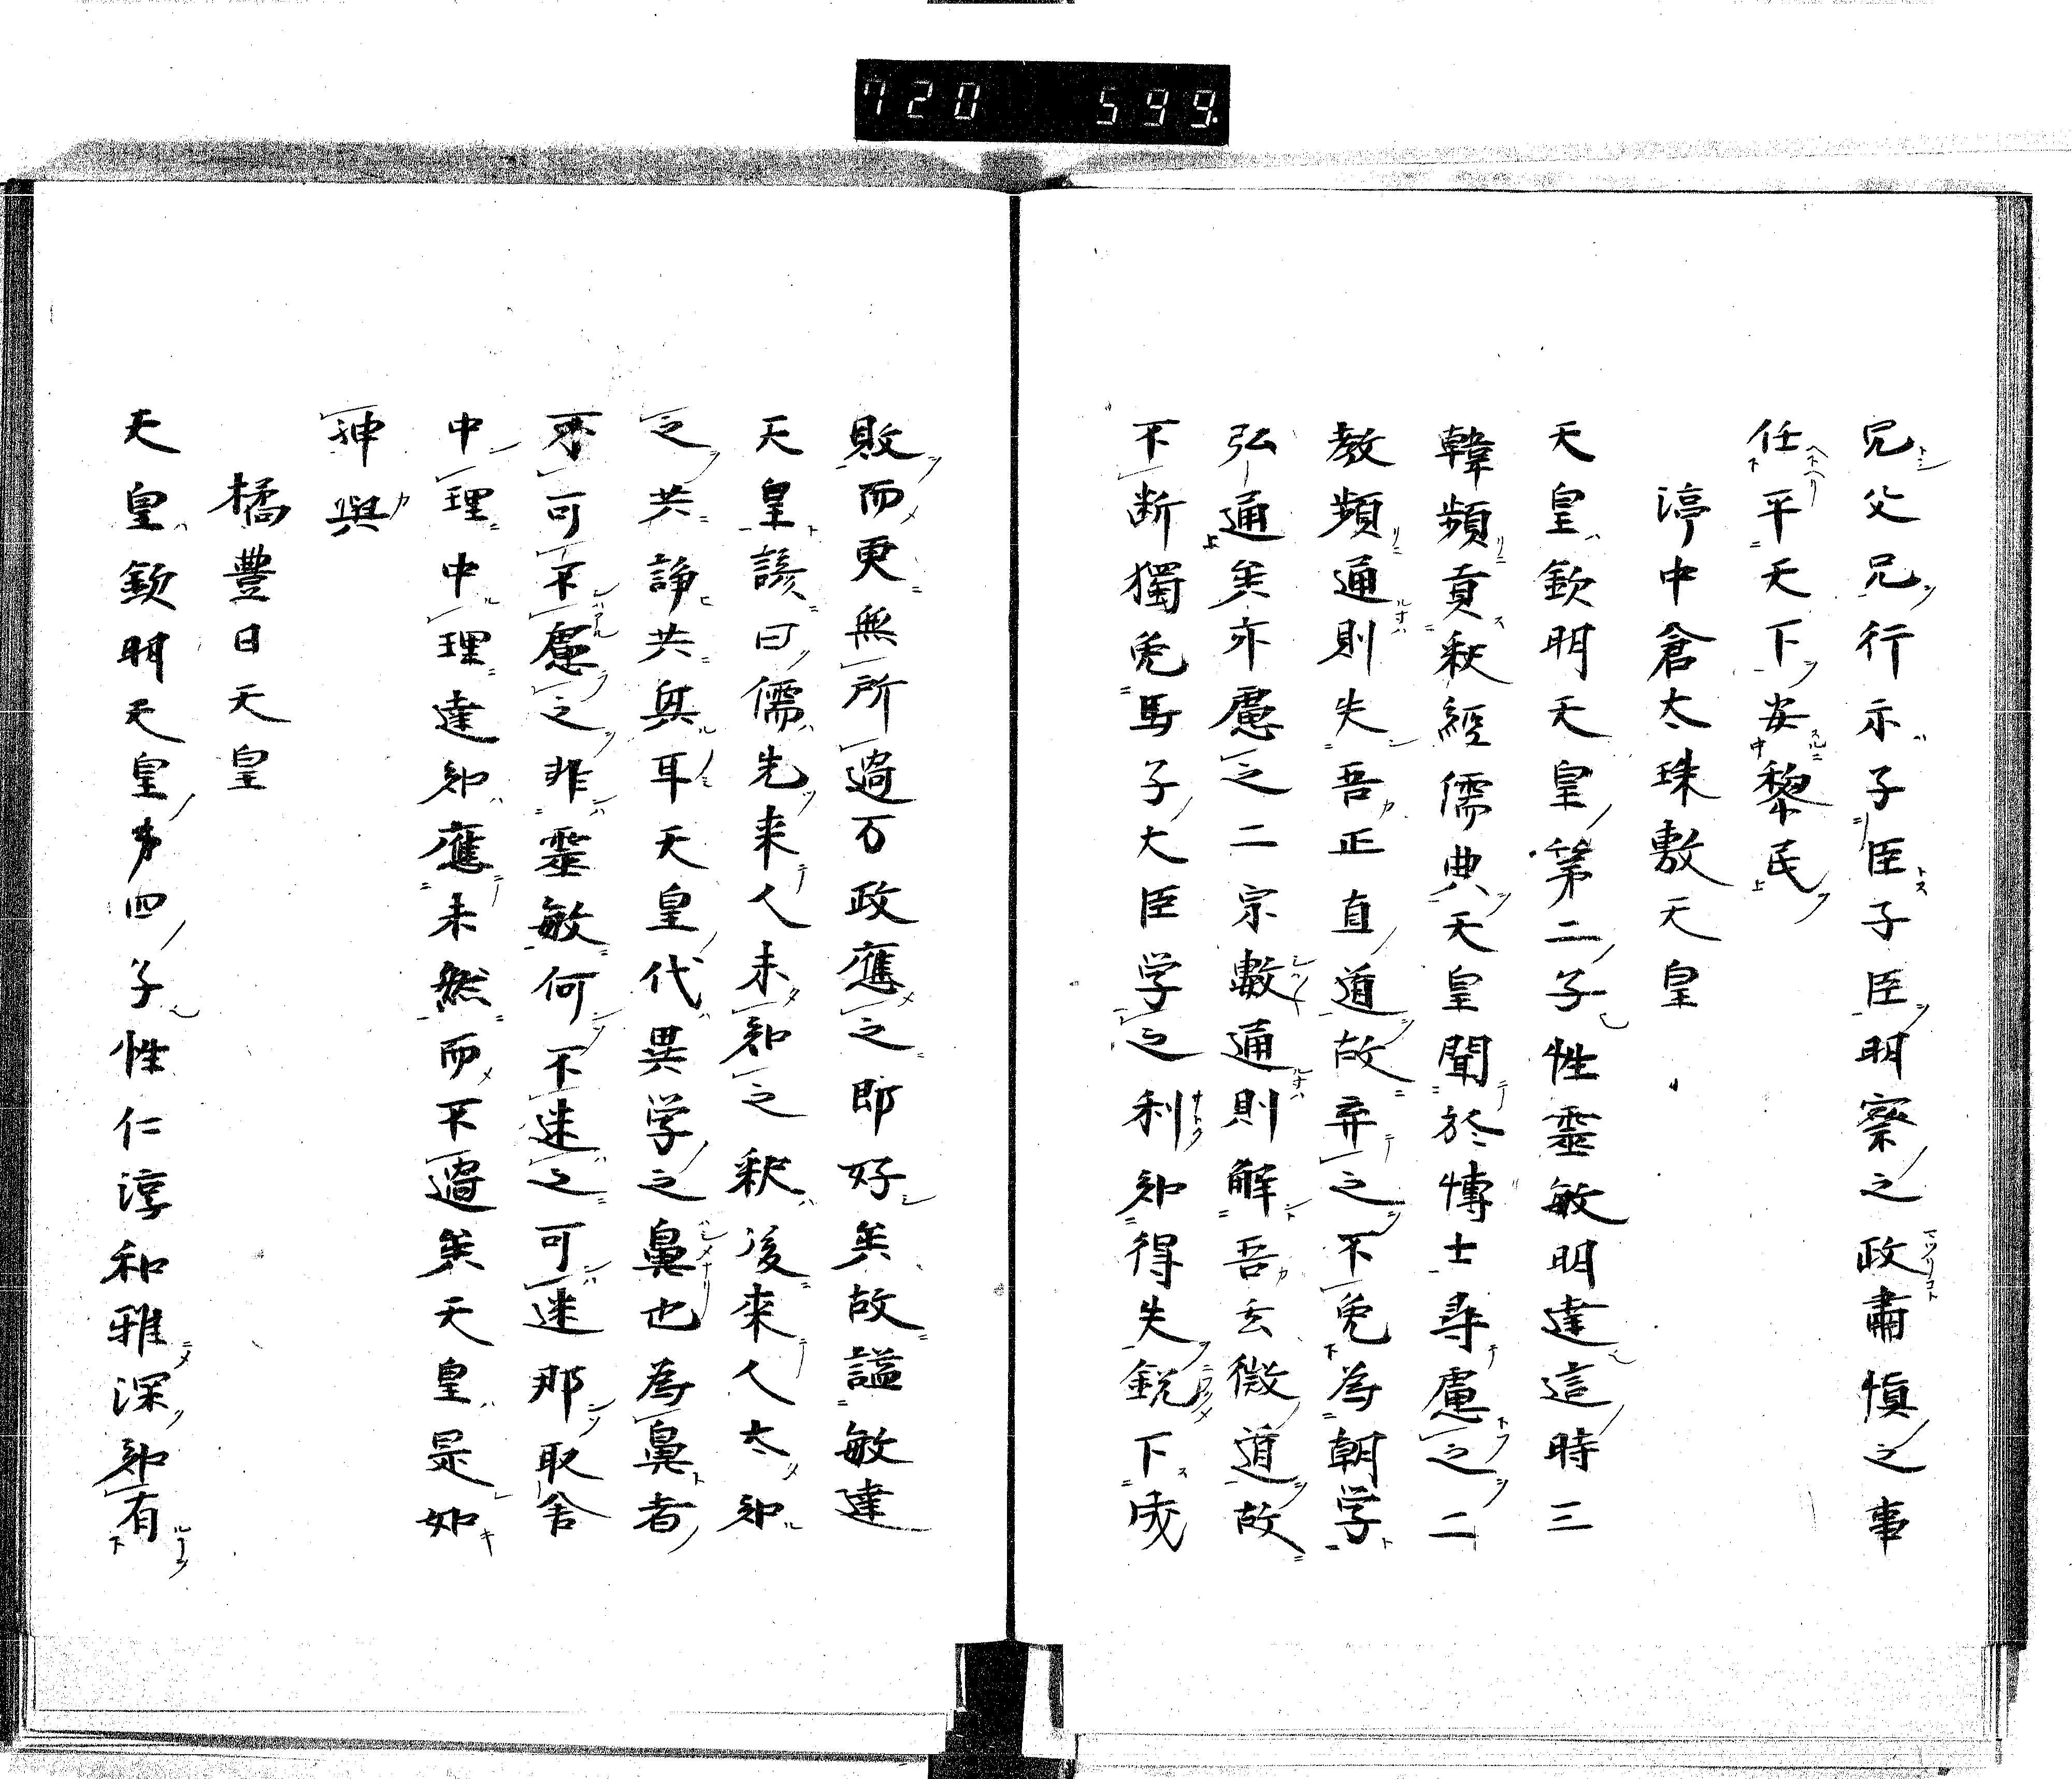 720 599.
兄父兄行示子臣子臣明察之政肅慎之事
任平天下安黎民
渟中倉太珠敷天皇
天皇欽明天皇第二子性霊敏明達這時三
韓頻貢釈經儒典天皇聞於博士尋慮之二
教頻通則失吾正直道故弃之不免為朝学
弘通矣亦慮之二宗數通則解吾玄微道故
不断獨兎馬子大臣学之利知得失鋭下成
敗而更無所過万政應之即好矣故謚敏達
天皇諺曰儒先来人未知之釈後来人太知
之共諍共與耳天皇代異学之鼻也為鼻者
不可不慮之非霊敏何不迷之可迷那取舍
中理中理達知應未然而不過矣天皇是如
神與
橘豐日天皇
天皇欽明天皇第四子性仁淳和雅深知有